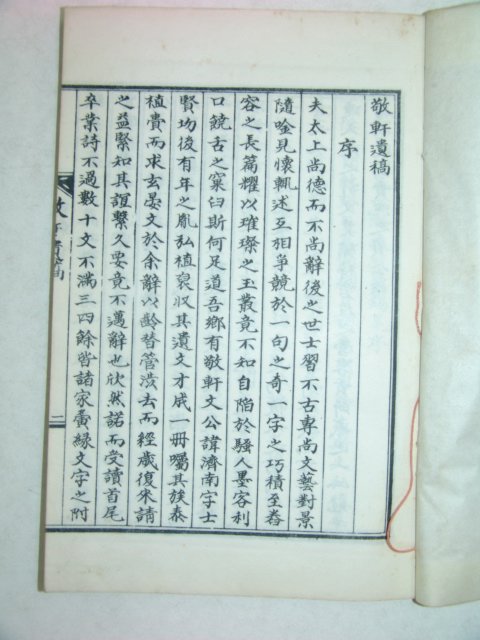 敬軒遺稿
序
夫太上尚德而不尚辭後之世士習不古專尚文藝對景
隨唫見懷輒述互相爭競於一句之奇一字之巧積至卷
容之長篇耀以璀璨之玉叢竟不知自陷於騷人墨客利
口饒舌之窠臼斯何足道吾鄉有敬軒文公諱濟南字士
賢功後有年之胤弘植裒収其遺文才成一冊囑其族泰
植賁而求玄晏文於余辭以齡替管澁去而經歲復來請
之益緊知其誼繫久要竟不邁辭也欣然諾而受讀首尾
卒業詩不過數十文不滿三四餘皆諸家夤緣文字之附
二